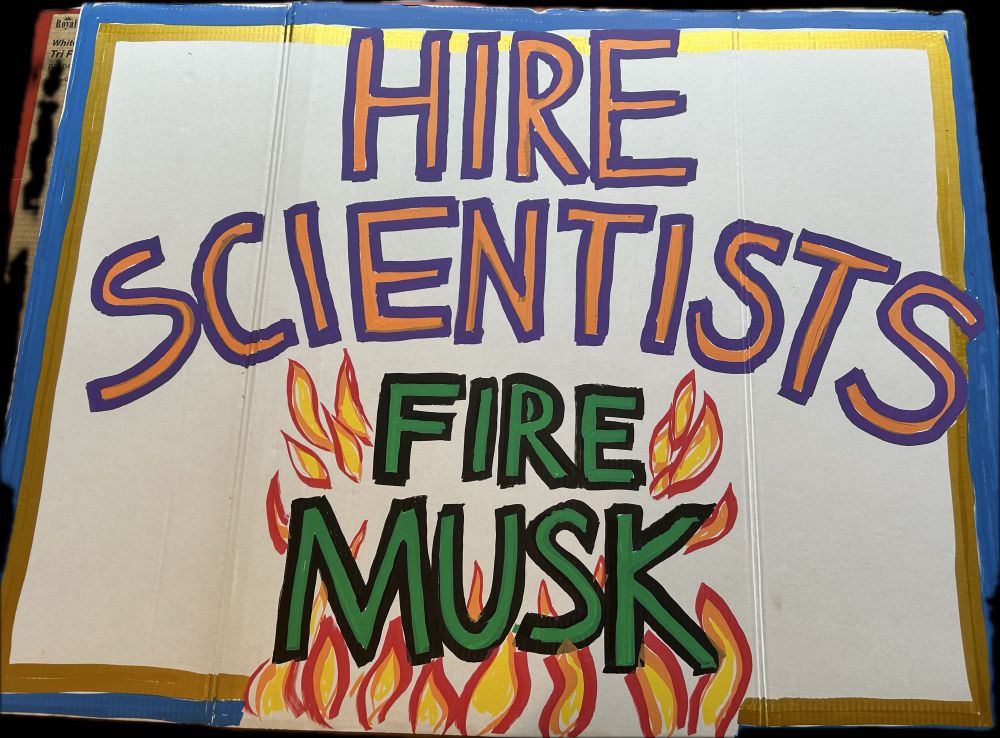 Royal
HIRE
SCIENTISTS
FIRE
MUSK